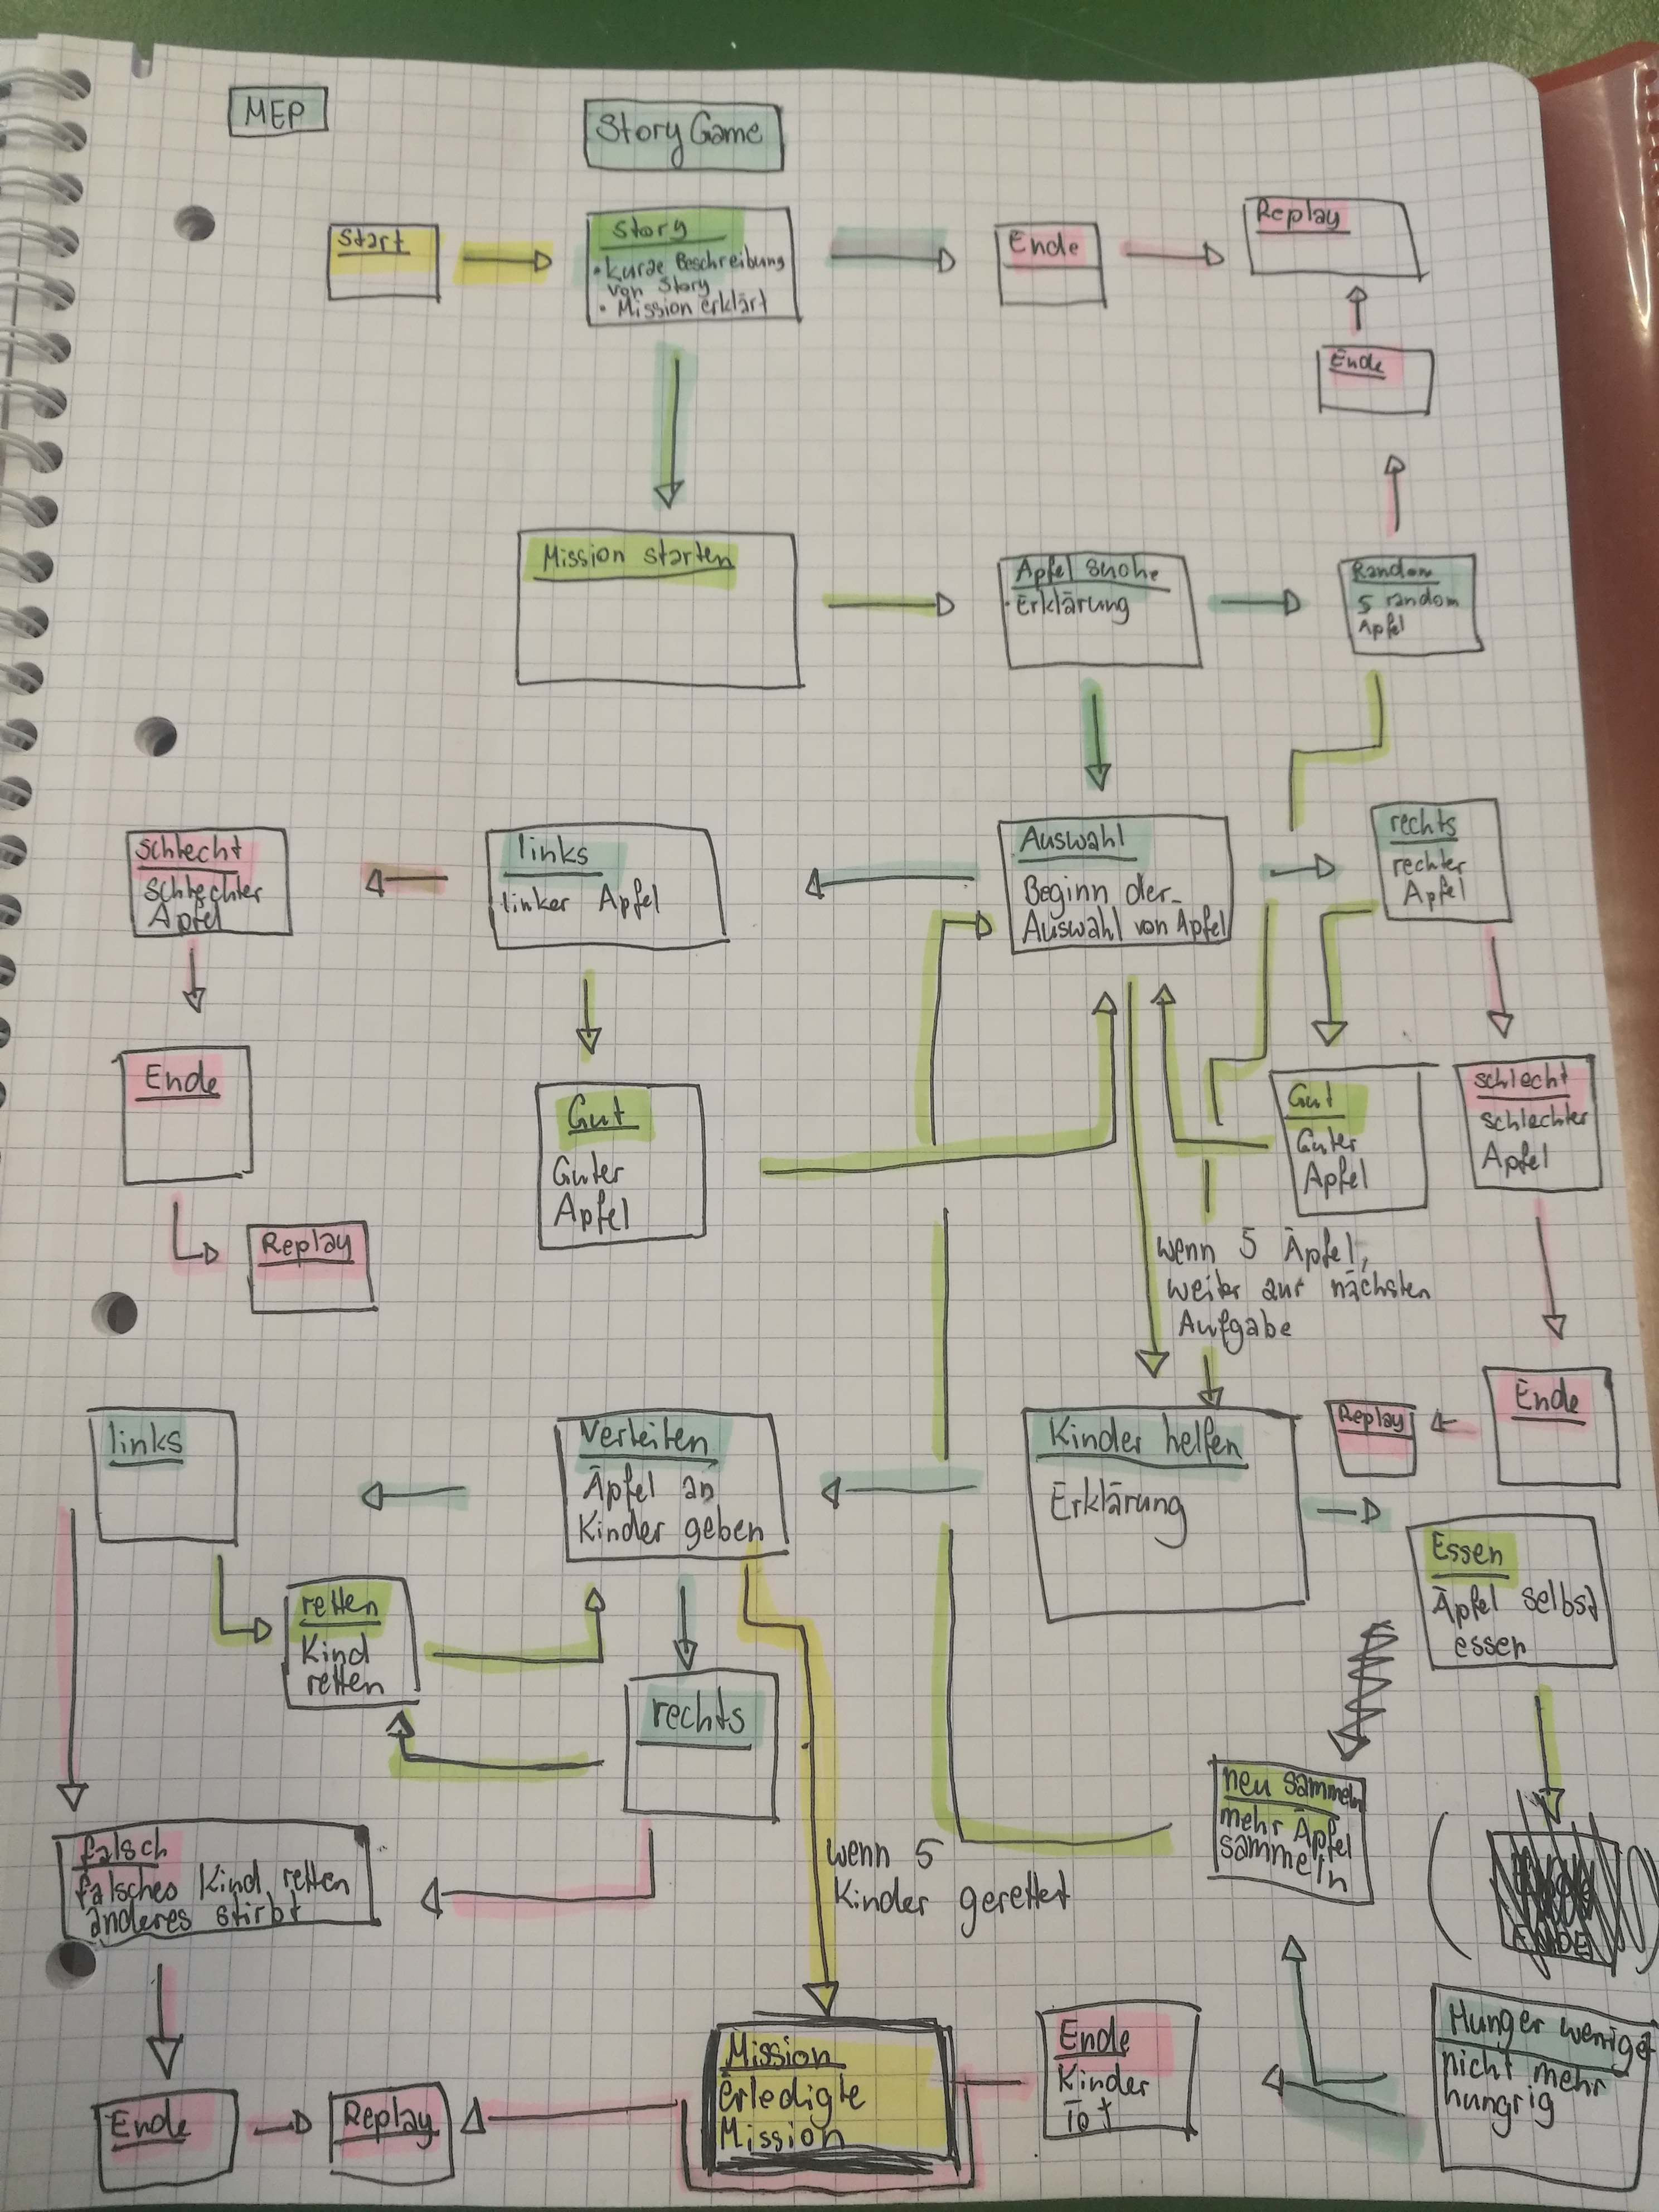 MEP
Story Game
Start
Story
• kurze Beschreibung
von Story
• Mission erklärt
Ende
Replay
Ende
Mission starten
Apfel suche
• Erklärung
Random
5 random
Apfel
schlecht
schlechter
Apfel
links
linker Apfel
Auswahl
Beginn der
Auswahl von Apfel
rechts
rechter
Apfel
Ende
Gut
Guter
Apfel
Gut
Guter
Apfel
schlecht
schlechter
Apfel
Replay
wenn 5 Äpfel,
weiter zur nächsten
Aufgabe
links
Verteiten
Äpfel an
Kinder geben
Kinder helfen
Erklärung
Replay
Ende
Essen
Äpfel selbst
essen
retten
Kind
retten
rechts
neu sammeln
mehr Äpfel
sammeln
falsch
falsches Kind retten
anderes stirbt
wenn 5
Kinder gerettet
Ende
Replay
Mission
Erledigte
Mission
Ende
Kinder
Tot
Hunger weniger
nicht mehr
hungrig